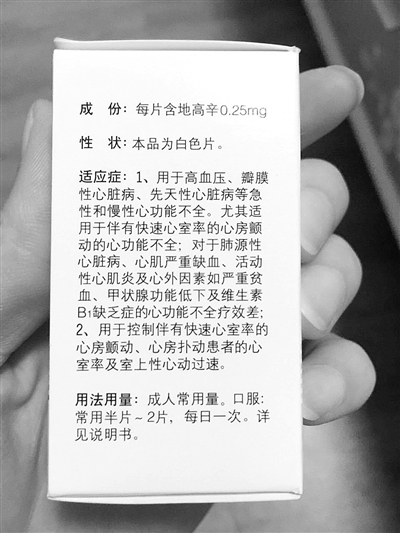 成　份：每片含地高辛0.25mg
性　状：本品为白色片。
适应症：1、用于高血压、瓣膜
性心脏病、先天性心脏病等急
性和慢性心功能不全。尤其适
用于伴有快速心室率的心房颤
动的心功能不全；对于肺源性
心脏病、心肌严重缺血、活动
性心肌炎及心外因素如严重贫
血、甲状腺功能低下及维生素
B₁缺乏症的心功能不全疗效差；
2、用于控制伴有快速心室率的
心房颤动、心房扑动患者的心
室率及室上性心动过速。
用法用量：成人常用量。口服：
常用半片~2片，每日一次。详
见说明书。